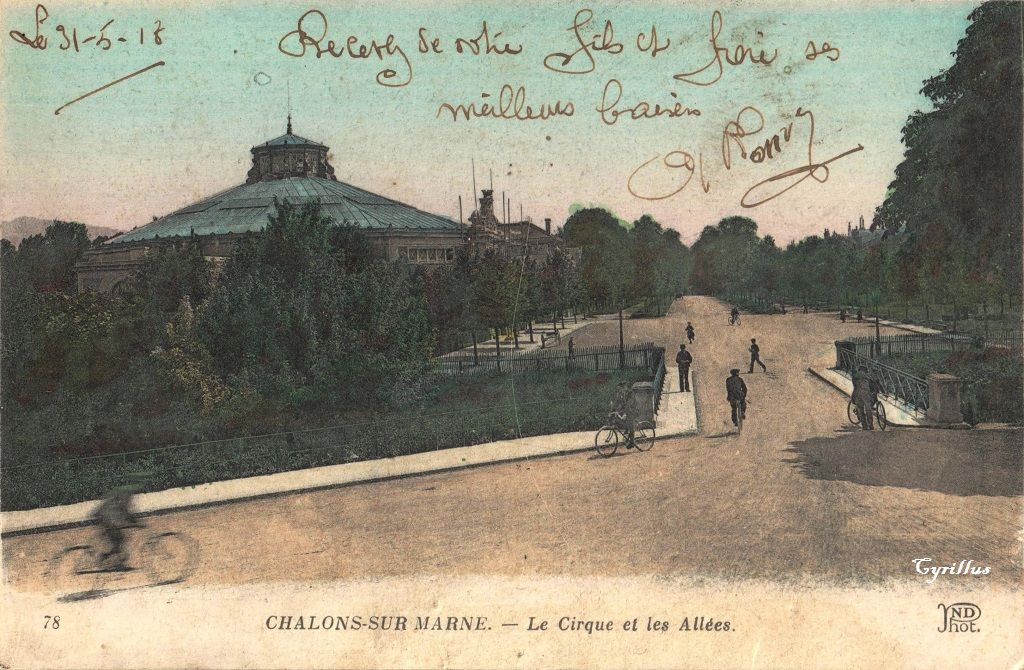 Le 31-5-18
Recevez de votre fils et frère ses
meilleurs baisers
Cyrillus
78
CHALONS-SUR MARNE. — Le Cirque et les Allées.
ND
Phot.